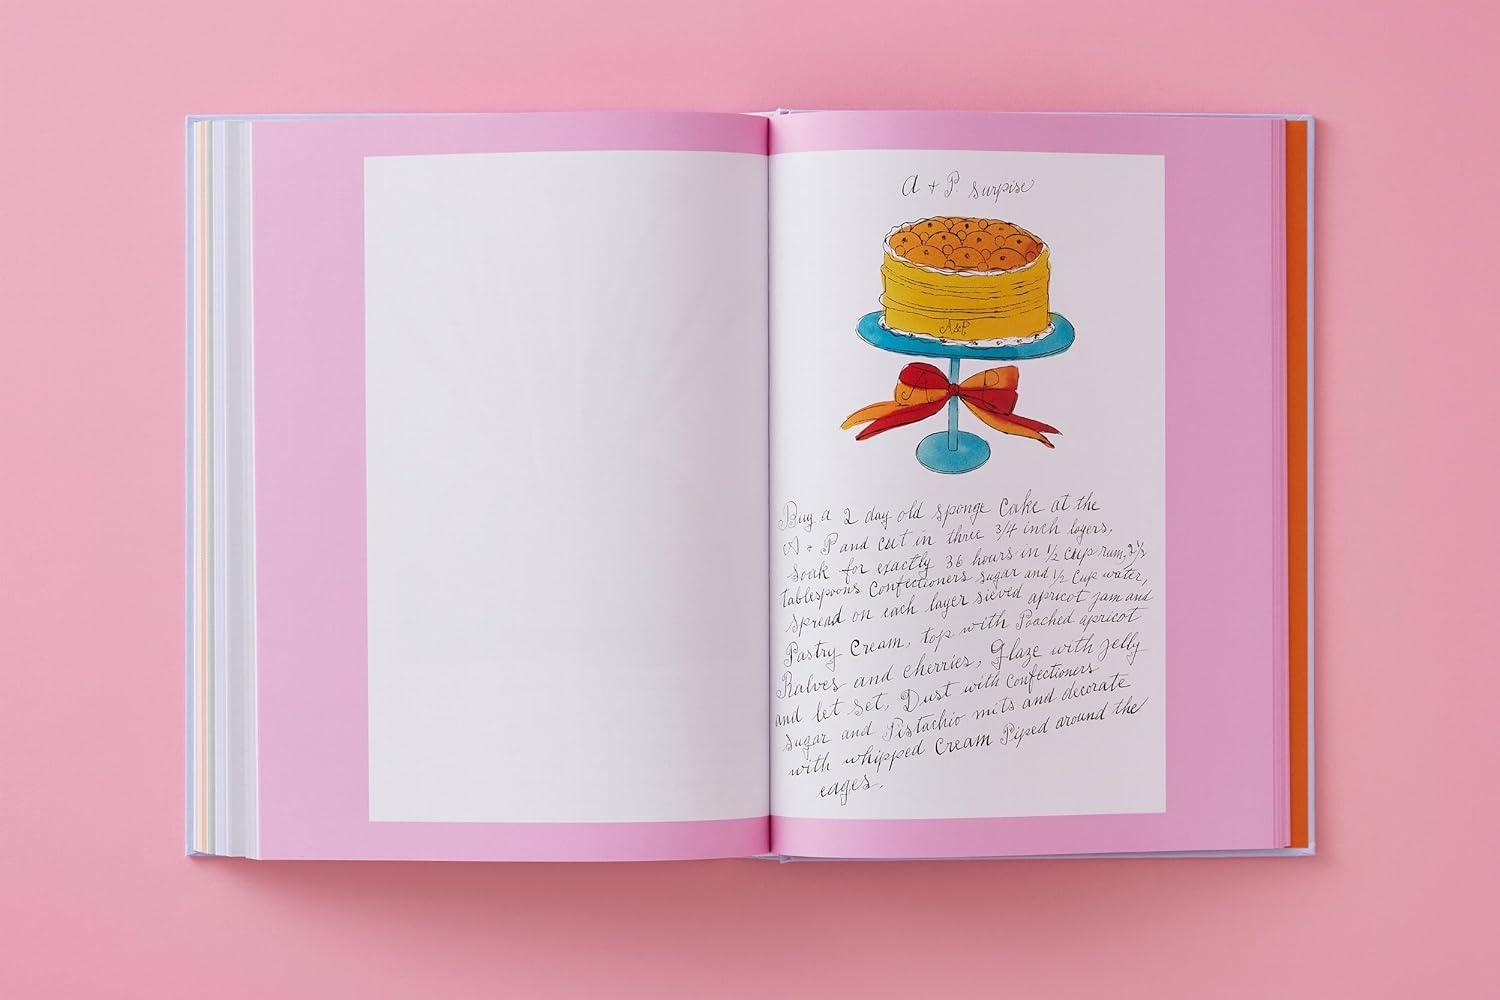 A + P. Surpise
A&P
A P
Buy a 2 day old sponge Cake at the
A + P and cut in three 3/4 inch layers,
Soak for exactly 36 hours in 1/2 cup rum, 2 1/2
tablespoons Confectioners sugar and 1/2 Cup water,
Spread on each layer sieved apricot jam and
Pastry Cream, top with Poached apricot
Halves and cherries, Glaze with jelly
and let set, Dust with Confectioners
Sugar and Pistachio nuts and decorate
with whipped Cream Piped around the
edges.